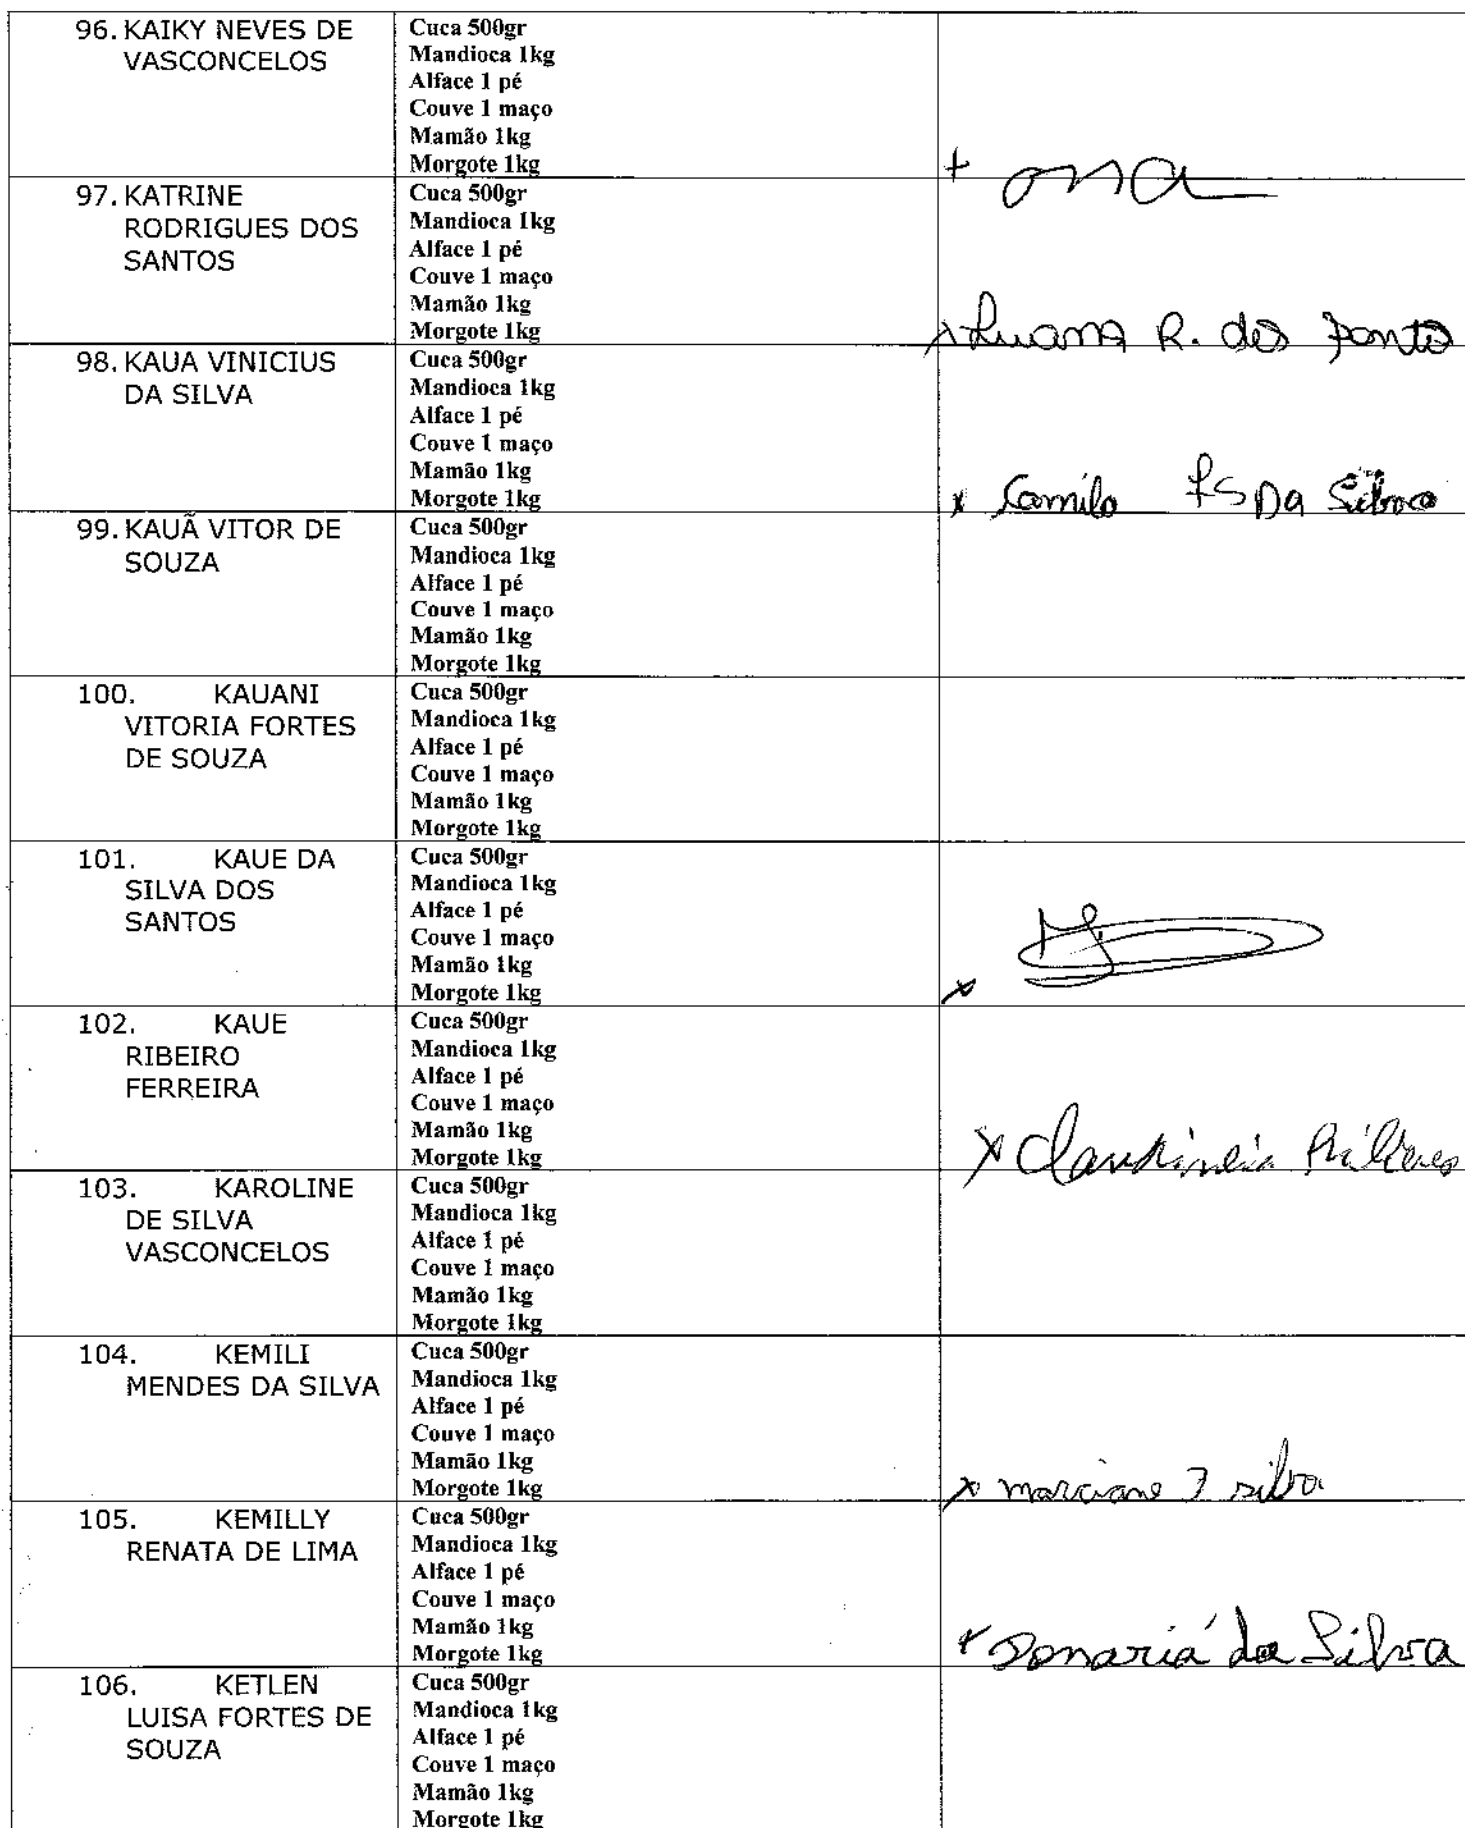 96. KAIKY NEVES DE
VASCONCELOS
Cuca 500gr
Mandioca 1kg
Alface 1 pé
Couve 1 maço
Mamão 1kg
Morgote 1kg
+ ona
97. KATRINE
RODRIGUES DOS
SANTOS
Cuca 500gr
Mandioca 1kg
Alface 1 pé
Couve 1 maço
Mamão 1kg
Morgote 1kg
x Luana R. dos
98. KAUA VINICIUS
DA SILVA
Cuca 500gr
Mandioca 1kg
Alface 1 pé
Couve 1 maço
Mamão 1kg
Morgote 1kg
x Camila Da Silva
99. KAUÃ VITOR DE
SOUZA
Cuca 500gr
Mandioca 1kg
Alface 1 pé
Couve 1 maço
Mamão 1kg
Morgote 1kg
100. KAUANI
VITORIA FORTES
DE SOUZA
Cuca 500gr
Mandioca 1kg
Alface 1 pé
Couve 1 maço
Mamão 1kg
Morgote 1kg
101. KAUE DA
SILVA DOS
SANTOS
Cuca 500gr
Mandioca 1kg
Alface 1 pé
Couve 1 maço
Mamão 1kg
Morgote 1kg
x
102. KAUE
RIBEIRO
FERREIRA
Cuca 500gr
Mandioca 1kg
Alface 1 pé
Couve 1 maço
Mamão 1kg
Morgote 1kg
x Claudinéia
103. KAROLINE
DE SILVA
VASCONCELOS
Cuca 500gr
Mandioca 1kg
Alface 1 pé
Couve 1 maço
Mamão 1kg
Morgote 1kg
104. KEMILI
MENDES DA SILVA
Cuca 500gr
Mandioca 1kg
Alface 1 pé
Couve 1 maço
Mamão 1kg
Morgote 1kg
x marciane silva
105. KEMILLY
RENATA DE LIMA
Cuca 500gr
Mandioca 1kg
Alface 1 pé
Couve 1 maço
Mamão 1kg
Morgote 1kg
+ da Silva
106. KETLEN
LUISA FORTES DE
SOUZA
Cuca 500gr
Mandioca 1kg
Alface 1 pé
Couve 1 maço
Mamão 1kg
Morgote 1kg